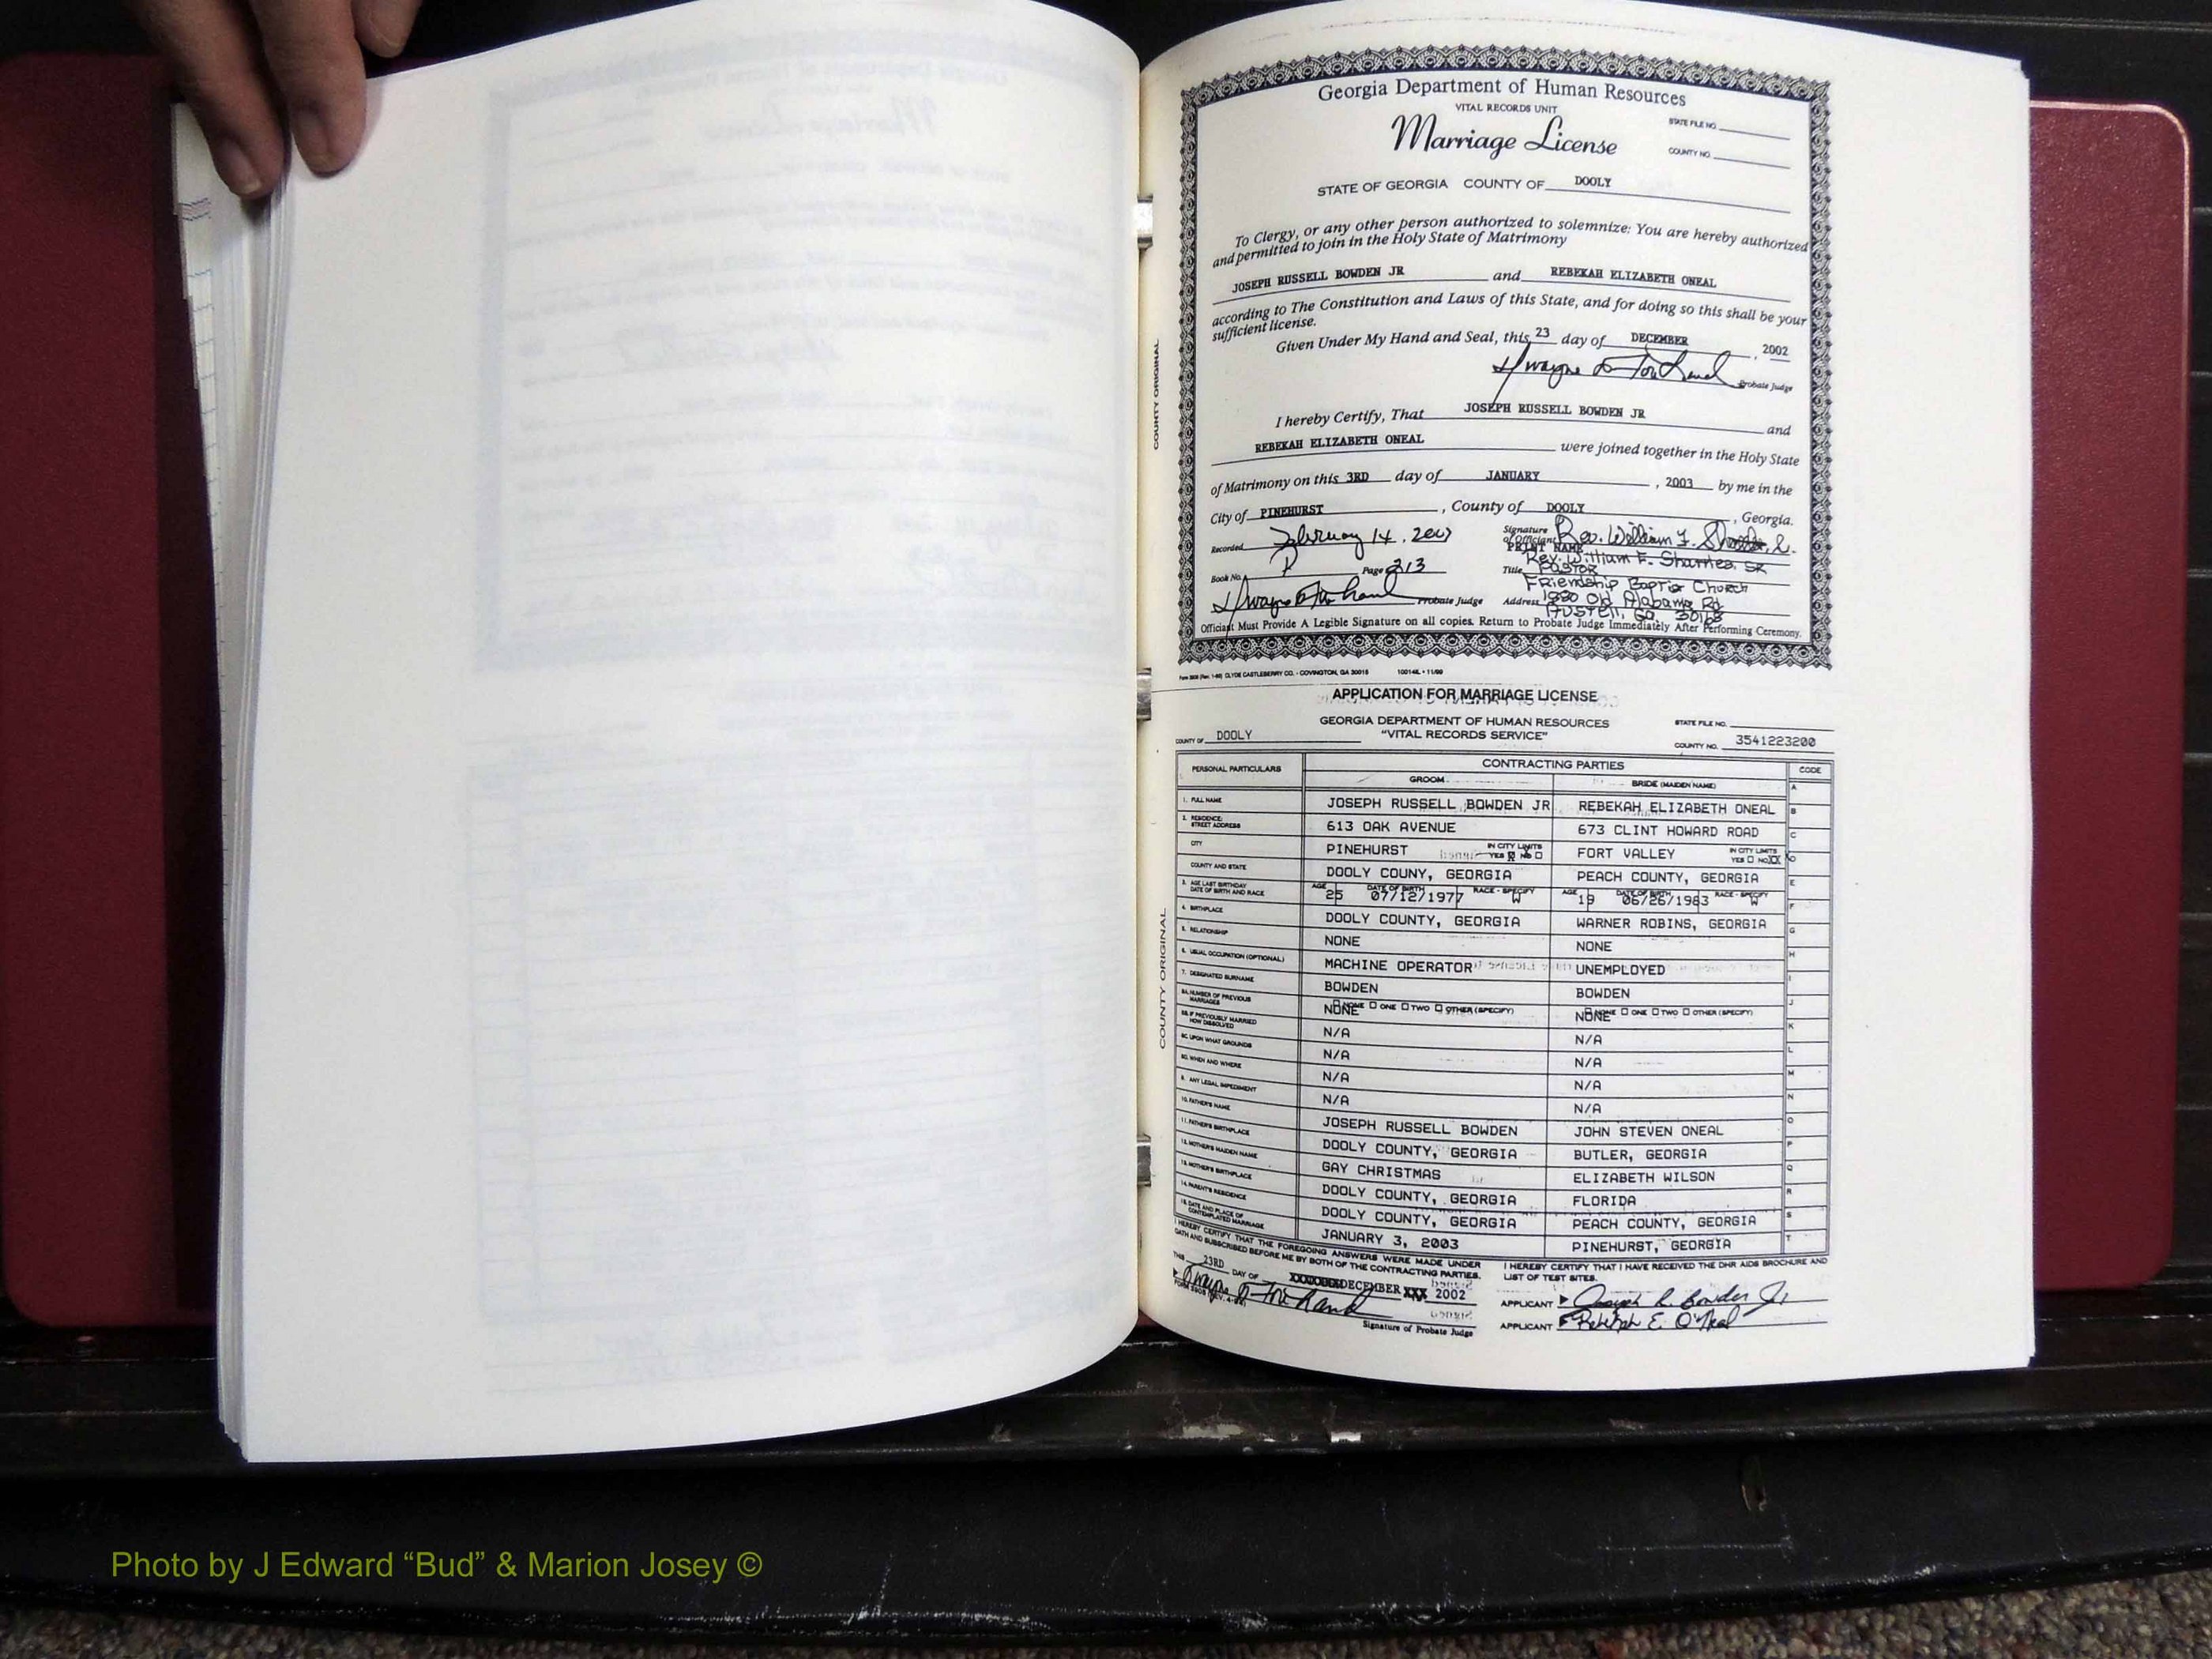 Georgia Department of Human Resources
VITAL RECORDS UNIT
Marriage License
STATE FILE NO.
COUNTY NO.
STATE OF GEORGIA COUNTY OF DOOLY
To Clergy, or any other person authorized to solemnize: You are hereby authorized
and permitted to join in the Holy State of Matrimony
JOSEPH RUSSELL BOWDEN JR and REBEKAH ELIZABETH ONEAL
according to The Constitution and Laws of this State, and for doing so this shall be your
sufficient license.
Given Under My Hand and Seal, this 23 day of DECEMBER, 2002
Probate Judge
I hereby Certify, That JOSEPH RUSSELL BOWDEN JR and
REBEKAH ELIZABETH ONEAL were joined together in the Holy State
of Matrimony on this 3RD day of JANUARY, 2003 by me in the
City of PINEHURST, County of DOOLY, Georgia.
Recorded February 14, 2003
Signature of Officiant Rev. William F.
PRINT NAME Rev. William F.
Book No. Page 213
Title PASTOR
Friendship Baptist Church
Probate Judge Address 1880 Old Alabama Rd
AUSTELL, GA. 30168
Officiant Must Provide A Legible Signature on all copies. Return to Probate Judge Immediately After Performing Ceremony.
COUNTY ORIGINAL
CLYDE CASTLEBERRY CO. - COVINGTON, GA 30015
APPLICATION FOR MARRIAGE LICENSE
GEORGIA DEPARTMENT OF HUMAN RESOURCES
"VITAL RECORDS SERVICE"
STATE FILE NO.
COUNTY OF DOOLY
COUNTY NO. 3541223200
COUNTY ORIGINAL
PERSONAL PARTICULARS CONTRACTING PARTIES CODE
GROOM BRIDE (MAIDEN NAME)
1. FULL NAME JOSEPH RUSSELL BOWDEN JR REBEKAH ELIZABETH ONEAL
2. RESIDENCE: STREET ADDRESS 613 OAK AVENUE 673 CLINT HOWARD ROAD
CITY PINEHURST IN CITY LIMITS YES NO FORT VALLEY IN CITY LIMITS YES NO
COUNTY AND STATE DOOLY COUNY, GEORGIA PEACH COUNTY, GEORGIA
3. AGE LAST BIRTHDAY DATE OF BIRTH AND RACE AGE 25 DATE OF BIRTH 07/12/1977 RACE - SPECIFY W AGE 19 DATE OF BIRTH 06/26/1983 RACE - SPECIFY W
4. BIRTHPLACE DOOLY COUNTY, GEORGIA WARNER ROBINS, GEORGIA
5. RELATIONSHIP NONE NONE
6. USUAL OCCUPATION (OPTIONAL) MACHINE OPERATOR UNEMPLOYED
7. DESIGNATED SURNAME BOWDEN BOWDEN
8A. NUMBER OF PREVIOUS MARRIAGES NONE ☐ NONE ☐ ONE ☐ TWO ☐ OTHER (SPECIFY) NONE ☐ NONE ☐ ONE ☐ TWO ☐ OTHER (SPECIFY)
8B. IF PREVIOUSLY MARRIED HOW DISSOLVED N/A N/A
8C. UPON WHAT GROUNDS N/A N/A
8D. WHEN AND WHERE N/A N/A
9. ANY LEGAL IMPEDIMENT N/A N/A
10. FATHER'S NAME JOSEPH RUSSELL BOWDEN JOHN STEVEN ONEAL
11. FATHER'S BIRTHPLACE DOOLY COUNTY, GEORGIA BUTLER, GEORGIA
12. MOTHER'S MAIDEN NAME GAY CHRISTMAS ELIZABETH WILSON
13. MOTHER'S BIRTHPLACE DOOLY COUNTY, GEORGIA FLORIDA
14. PARENT'S RESIDENCE DOOLY COUNTY, GEORGIA PEACH COUNTY, GEORGIA
15. DATE AND PLACE OF CONTEMPLATED MARRIAGE JANUARY 3, 2003 PINEHURST, GEORGIA
I HEREBY CERTIFY THAT THE FOREGOING ANSWERS WERE MADE UNDER
OATH AND SUBSCRIBED BEFORE ME BY BOTH OF THE CONTRACTING PARTIES.
THIS 23RD DAY OF DECEMBER XXX 2002
Signature of Probate Judge
I HEREBY CERTIFY THAT I HAVE RECEIVED THE DHR AIDS BROCHURE AND
LIST OF TEST SITES.
APPLICANT Joseph R. Bowden Jr
APPLICANT Rebekah E. O'Neal
Photo by J Edward “Bud” & Marion Josey ©